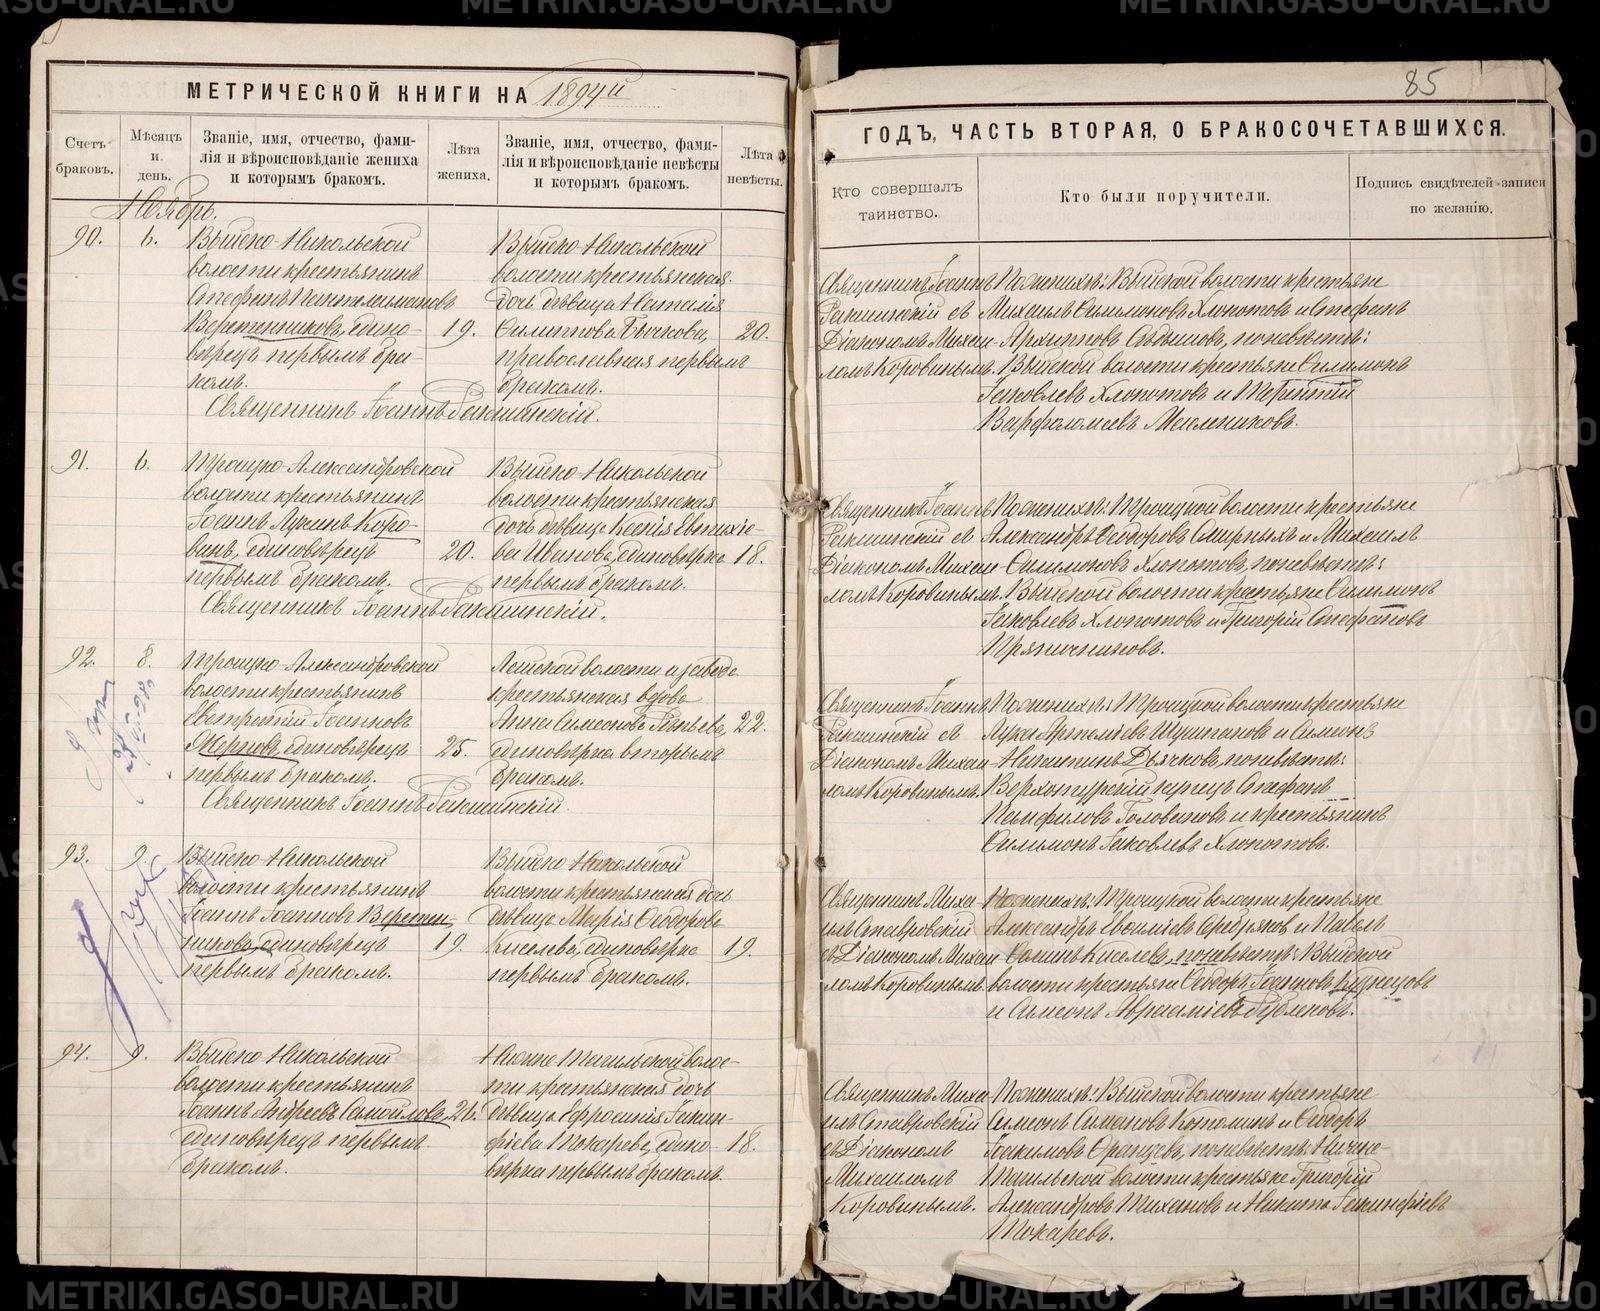 МЕТРИЧЕСКОЙ КНИГИ НА 1894й
Счетъ браковъ.
Мѣсяцъ и день.
Званіе, имя, отчество, фами-
лія и вѣроисповѣданіе жениха
и которымъ бракомъ.
Лѣта жениха.
Званіе, имя, отчество, фами-
лія и вѣроисповѣданіе невѣсты
и которымъ бракомъ.
Лѣта невѣсты.
Ноябрь.
90.
6.
Выйско-Никольской
волости крестьянинъ
Стефанъ Пантелеимоновъ
Веретенниковъ, едино-
вѣрецъ первымъ бра-
комъ.
19.
Выйско-Никольской
волости крестьянская
дочь дѣвица Наталія
Филиппова Бычкова,
православная первымъ
бракомъ.
20.
Священникъ Іоаннъ
91.
6.
Троицко-Александровской
волости крестьянинъ
Іоаннъ Лукинъ Коро-
винъ, единовѣрецъ
первымъ бракомъ.
20.
Выйско-Никольской
волости крестьянская
дочь дѣвица Ксенія Евтихіе-
ва Иванова, единовѣрка
первымъ бракомъ.
18.
Священникъ Іоаннъ
92.
8.
Троицко-Александровской
волости крестьянинъ
Евстратій Іоанновъ
единовѣрецъ
первымъ бракомъ.
25.
Лайской волости и завода
крестьянская вдова
Анна Симеонова
единовѣрка вторымъ
бракомъ.
22.
Священникъ Іоаннъ
93.
9.
Выйско-Никольской
волости крестьянинъ
Іоаннъ Іоанновъ Веретен-
никовъ, единовѣрецъ
первымъ бракомъ.
19.
Выйско Никольской
волости крестьянская дочь
дѣвица Марія Ѳеодорова
Киселева, единовѣрка
первымъ бракомъ.
19.
94.
9.
Выйско-Никольской
волости крестьянинъ
Іоаннъ Андреевъ Самойловъ
единовѣрецъ первымъ
бракомъ.
21.
Нижне Тагильской волос-
ти крестьянская дочь
дѣвица Ефросинія Іакин-
фіева Токарева, едино-
вѣрка первымъ бракомъ.
18.
85
ГОДЪ, ЧАСТЬ ВТОРАЯ, О БРАКОСОЧЕТАВШИХСЯ.
Кто совершалъ
таинство.
Кто были поручители.
Подпись свидѣтелей записи
по желанію.
Священникъ Іоаннъ
съ
Діакономъ Михаи-
ломъ Коровинымъ.
По женихѣ: Выйской волости крестьяне
Михаилъ Филимоновъ Хлопотовъ и Стефанъ
Архипповъ Сѣдышовъ, по невѣстѣ:
Выйской волости крестьяне Филимонъ
Іаковлевъ Хлопотовъ и Терентій
Варфоломеевъ Масленниковъ.
Священникъ Іоаннъ
съ
Діакономъ Михаи-
ломъ Коровинымъ.
По женихѣ: Троицкой волости крестьяне
Александръ Ѳеодоровъ Смирныхъ и Михаилъ
Филимоновъ Хлопотовъ, по невѣстѣ:
Выйской волости крестьяне Филимонъ
Іаковлевъ Хлопотовъ и Григорій Стефановъ
Пряничниковъ.
Священникъ Іоаннъ
съ
Діакономъ Михаи-
ломъ Коровинымъ.
По женихѣ: Троицкой волости крестьяне
Лука Артемьевъ и Симеонъ
Никитинъ Дьячковъ, по невѣстѣ:
Верхотурскій купецъ Стефанъ
Памфиловъ Головановъ и крестьянинъ
Филимонъ Іаковлевъ Хлопотовъ.
Священникъ Миха-
илъ Ставровскій
съ Діакономъ Михаи-
ломъ Коровинымъ.
По женихѣ: Троицкой волости крестьяне
Александръ Евфиміевъ Серебряковъ и Павелъ
Ѳоминъ Киселевъ, по невѣстѣ: Выйской
волости крестьяне Ѳеодоръ Іоанновъ Кузнецовъ
и Симеонъ Авраамьевъ
Священникъ Миха-
илъ Ставровскій
съ Діакономъ
Михаиломъ
Коровинымъ.
По женихѣ: Выйской волости крестьяне
Симеонъ и Ѳедоръ
Іоакимовъ по невѣстѣ: Нижне-
Тагильской волости крестьяне Григорій
Александровъ Тихановъ и Никита Іакинфіевъ
Токаревъ.
METRIKI.GASO-URAL.RU